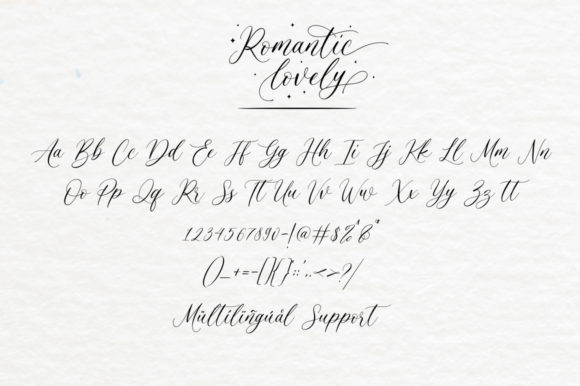 Romantic
lovely
Aa Bb Cc Dd Ee Ff Gg Hh Ii Jj Kk Ll Mm Nn
Oo Pp Qq Rr Ss Tt Uu Vv Ww Xx Yy Zz tt
1234567890-!@#$%^&*
()_+=-[]{}:;'.,<>?/
Múltilïñgúál Support